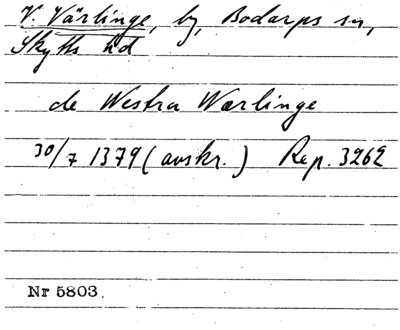 V. Värlinge, by, Bodarps sn,
Skytts hd
de Westra Wærlinge
30/7 1379 (avskr.) Rep. 3262
Nr 5803.